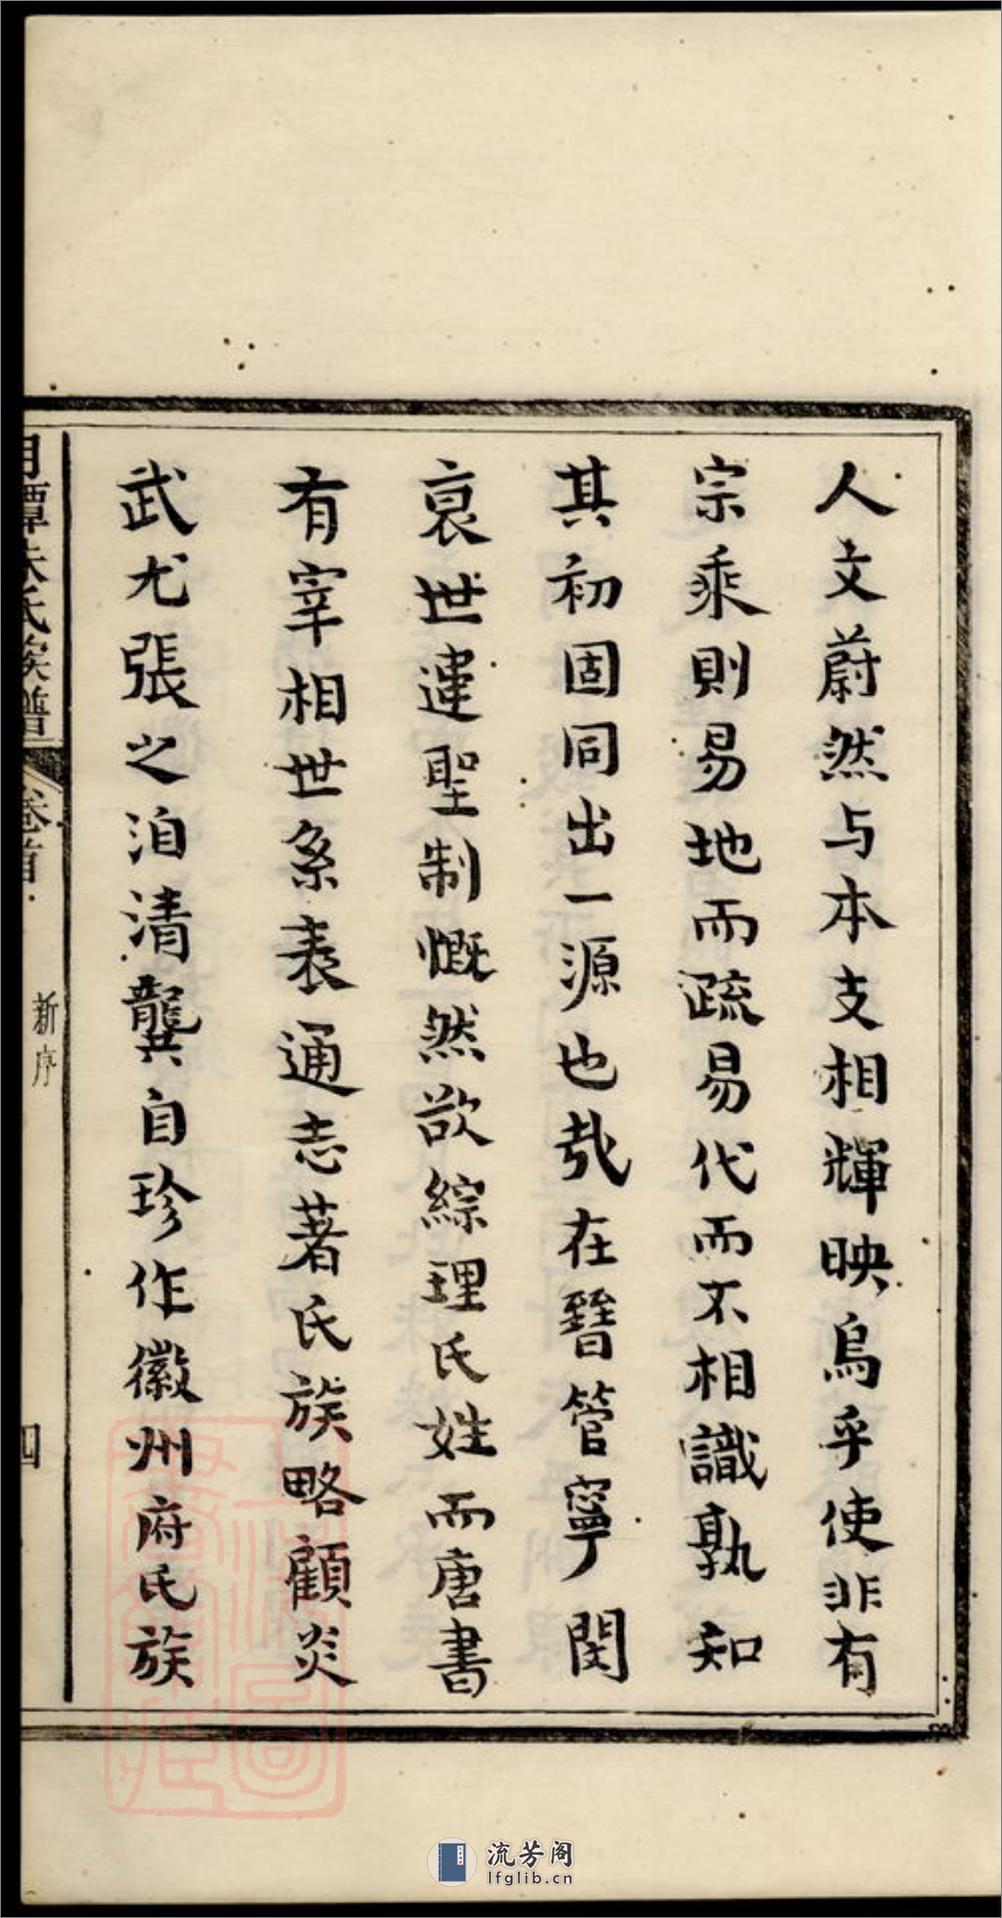 人文蔚然与本支相輝映烏乎使非有
宗乘則易地而疏易代而不相識孰知
其初固同出一源也㢤在晉管寧閔
衰世違聖制慨然欲綜理氏姓而唐書
有宰相世系表通志著氏族略顧炎
武尤張之洎清龔自珍作徽州府氏族
月潭朱氏族譜
卷首
新序
四
流芳阁
lfglib.cn